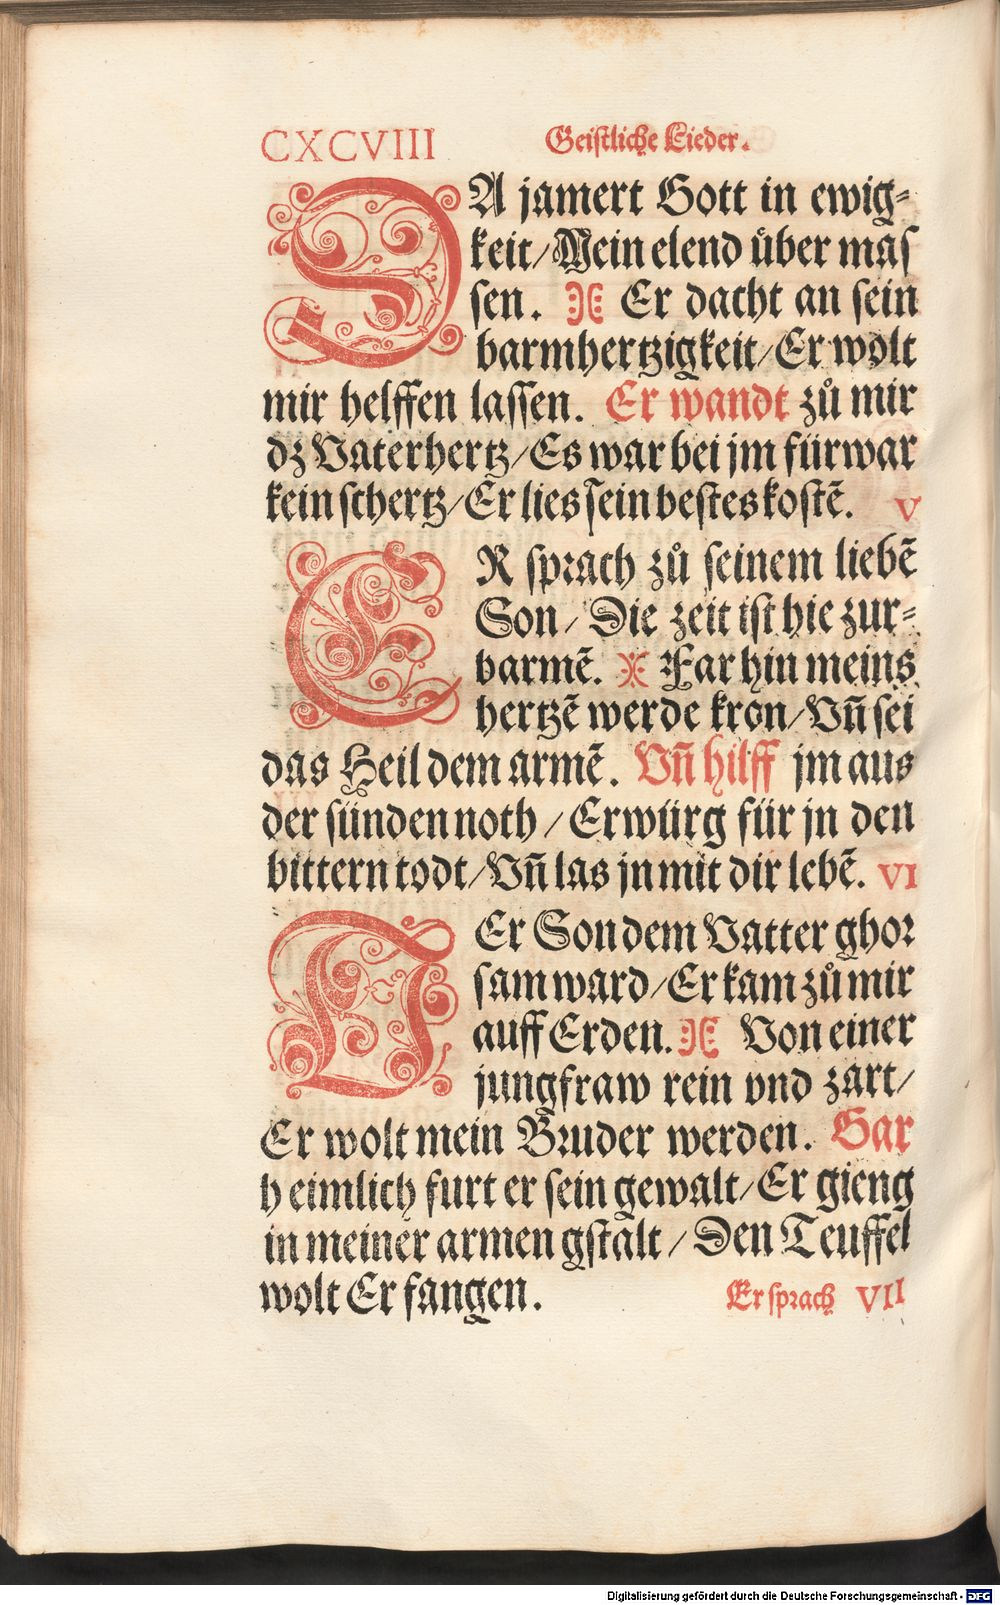 CXCVIII Geistliche Lieder.
DA jamert Gott in ewig⸗
keit/Mein elend uͤber mas
sen. Er dacht an sein
barmhertzigkeit/Er wolt
mir helffen lassen. Er wandt zuͦ mir
dz Vaterhertz/Es war bei jm fürwar
kein schertz/Er lies sein bestes kostē. V
ER sprach zuͦ seinem liebē
Son/Die zeit ist hie zur⸗
barmē. Far hin meins
hertzē werde kron/Vñ sei
das Heil dem armē. Vñ hilff jm aus
der sünden noth/Erwürg für jn den
bittern todt/Vñ las jn mit dir lebē. VI
DEr Son dem Vatter ghor
sam ward/Er kam zuͦ mir
auff Erden. Von einer
jungfraw rein vnd zart/
Er wolt mein Bruder werden. Gar
heimlich furt er sein gewalt/Er gieng
in meiner armen gstalt/Den Teuffel
wolt Er fangen. Er sprach VII
Digitalisierung gefördert durch die Deutsche Forschungsgemeinschaft - DFG